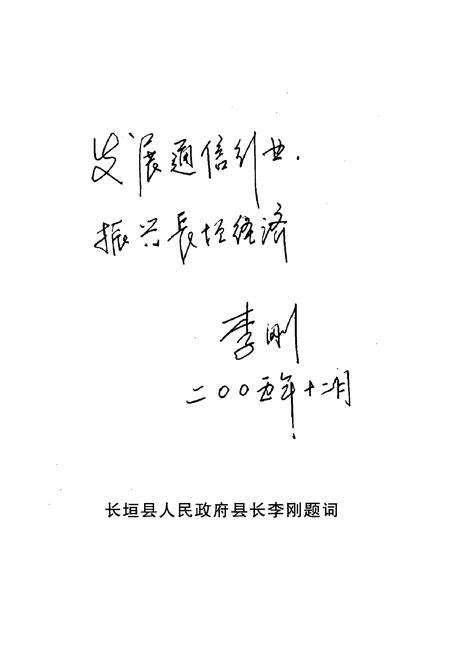 发展通信行业.
振兴長垣经济
李刚
二〇〇五年十二月
长垣县人民政府县长李刚题词